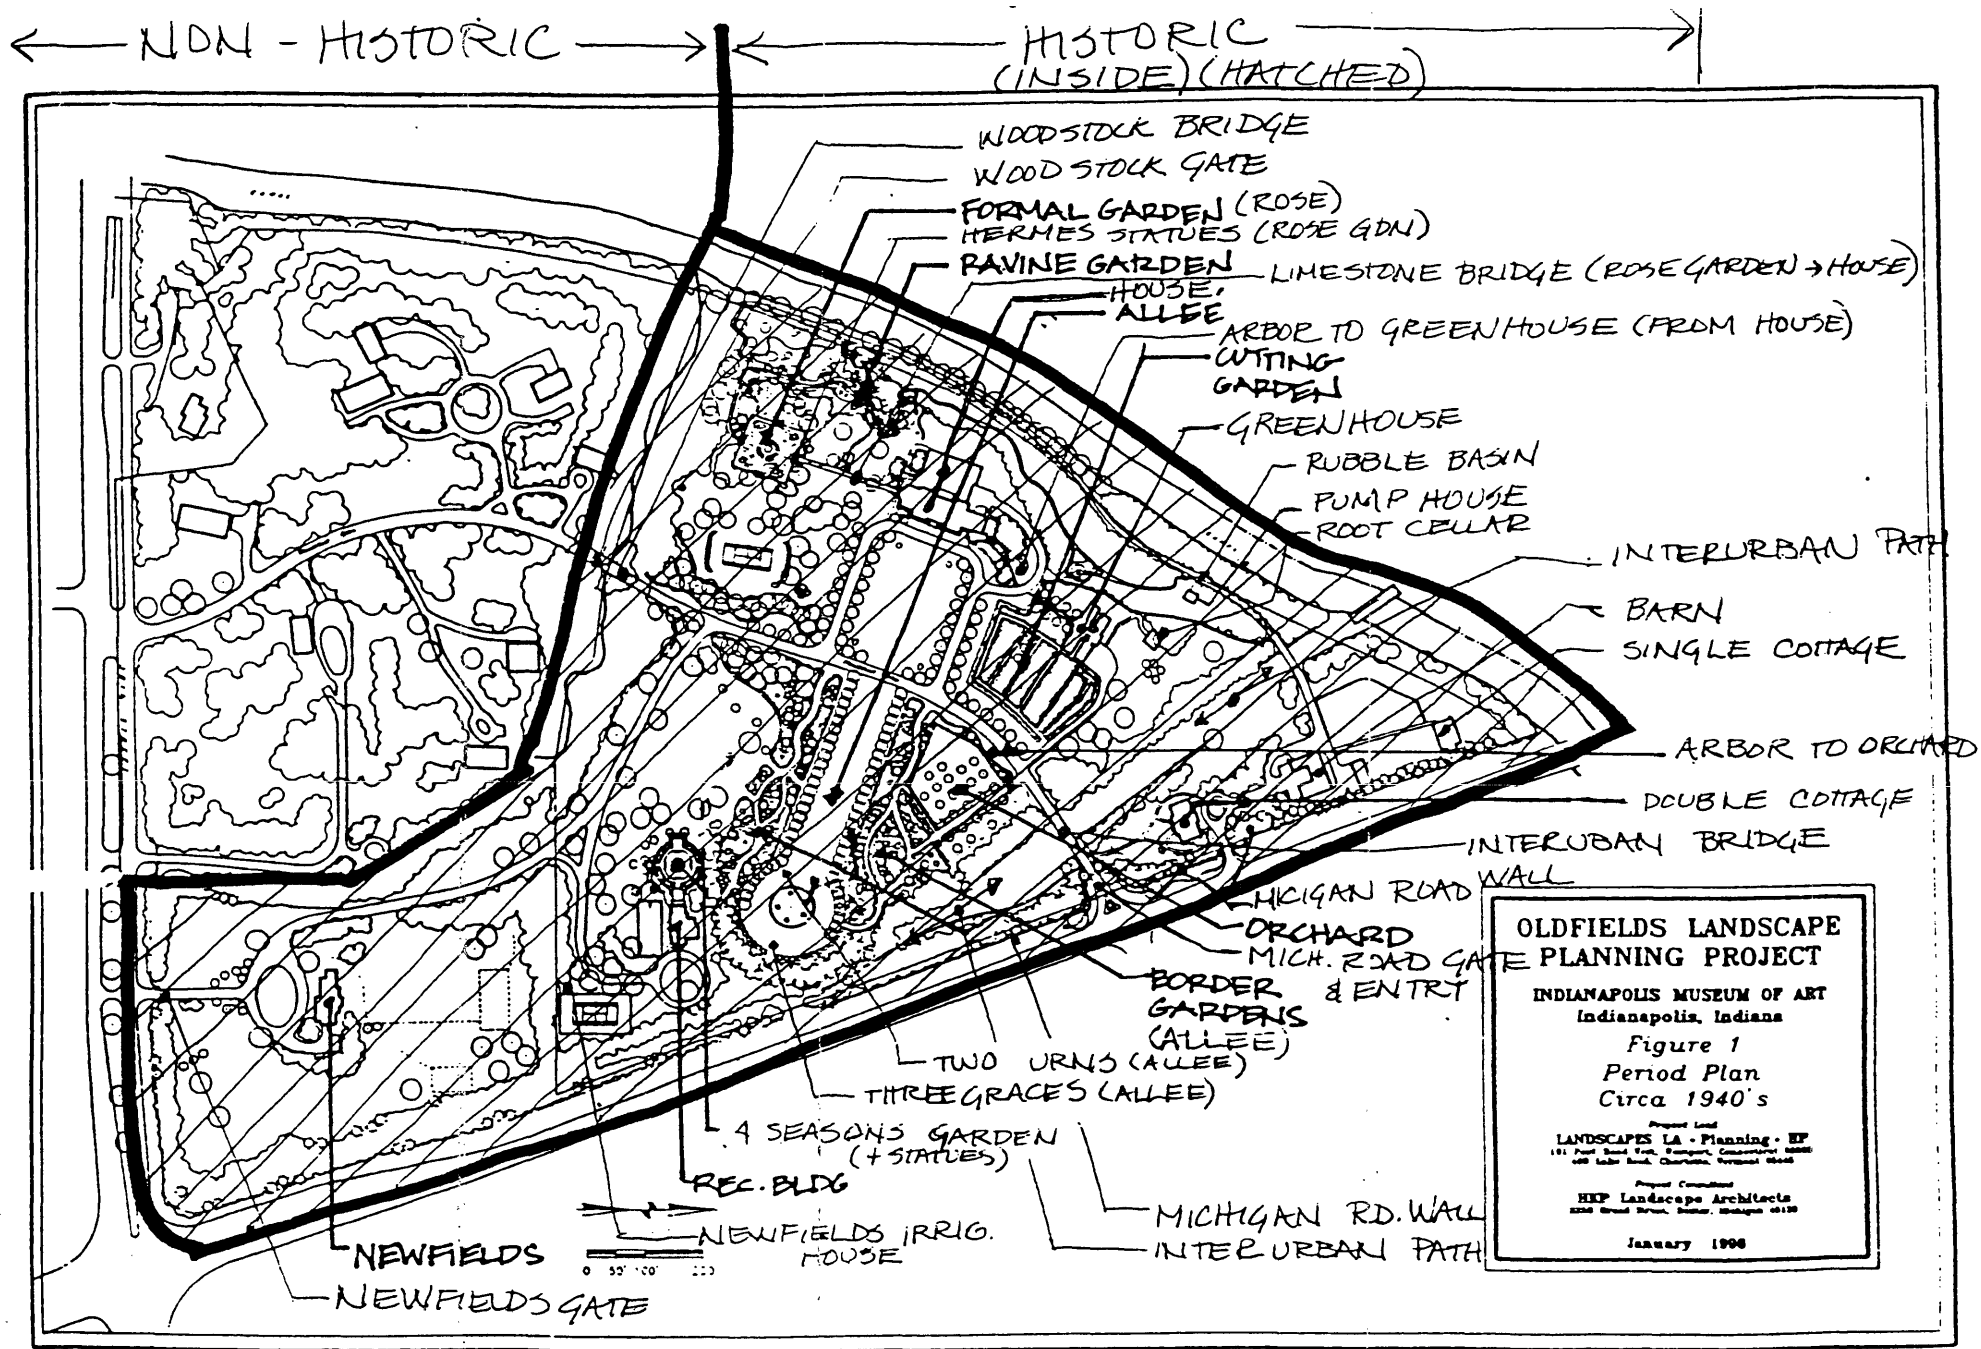 NON - HISTORIC
HISTORIC
(INSIDE) (HATCHED)
WOODSTOCK BRIDGE
WOODSTOCK GATE
FORMAL GARDEN (ROSE)
HERMES STATUES (ROSE GDN)
RAVINE GARDEN
LIMESTONE BRIDGE (ROSE GARDEN → HOUSE)
HOUSE
ALLEE
ARBOR TO GREENHOUSE (FROM HOUSE)
CUTTING
GARDEN
GREENHOUSE
RUBBLE BASIN
PUMP HOUSE
ROOT CELLAR
INTERURBAN PATH
BARN
SINGLE COTTAGE
ARBOR TO ORCHARD
DOUBLE COTTAGE
INTERUBAN BRIDGE
MICIGAN ROAD WALL
ORCHARD
MICH. ROAD GATE
& ENTRY
BORDER
GARDENS
(ALLEE)
TWO URNS (ALLEE)
THREE GRACES (ALLEE)
4 SEASONS GARDEN
(+ STATUES)
REC. BLDG
MICHIGAN RD. WALL
INTERURBAN PATH
NEWFIELDS IRRIG.
HOUSE
NEWFIELDS
NEWFIELDS GATE
0 50' 100'
OLDFIELDS LANDSCAPE
PLANNING PROJECT
INDIANAPOLIS MUSEUM OF ART
Indianapolis, Indiana
Figure 1
Period Plan
Circa 1940's
Project Lead
LANDSCAPES LA · Planning · HP
Project Consultant
HKP Landscape Architects
January 1996